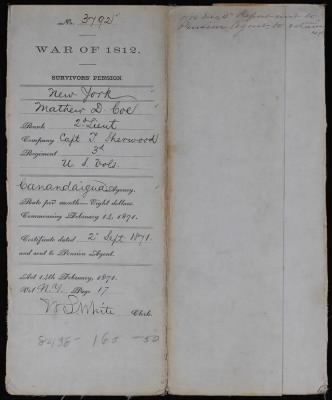 No. 3792
WAR OF 1812.
SURVIVORS' PENSION
New York
Mathew D. Coe
Rank 2d Lieut
Company Capt T. Sherwood
Regiment 3d
U S Vols
Canandaigua Agency,
Rate per month—Eight dollars.
Commencing February 14, 1871.
Certificate dated 2 Sept 1871.
and sent to Pension Agent.
Act 14th February, 1871.
Vol N.Y. Page 17
White Clerk.
Report
Pension Agent